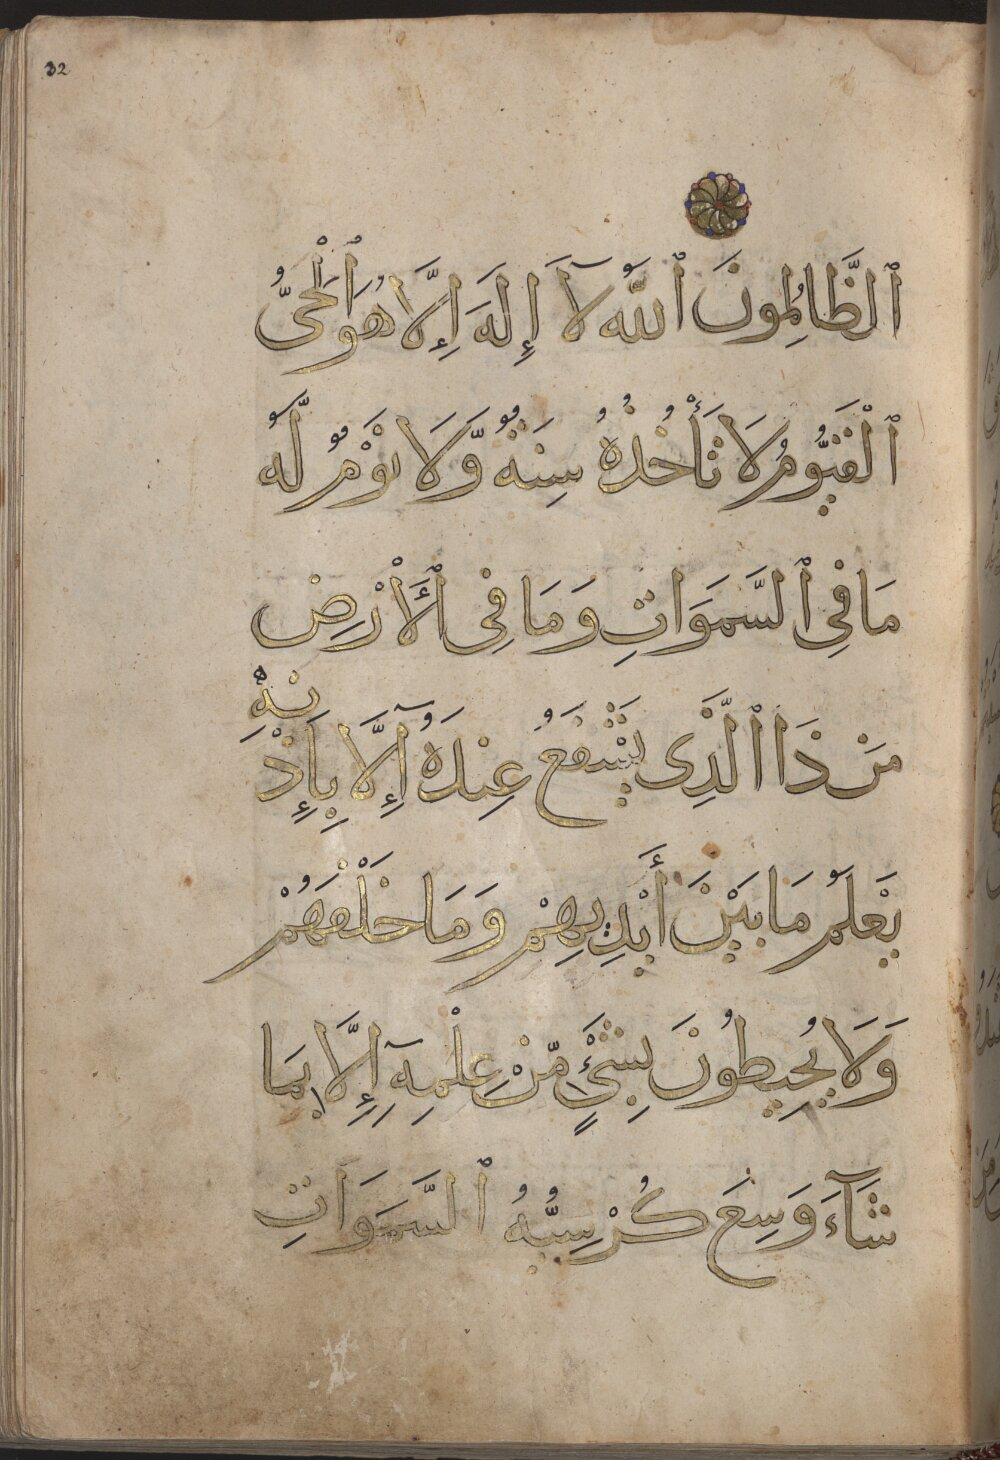 32
ٱلظَّالِمُونَ ٱللَّهُ لَآ إِلَهَ إِلَّا هُوَ ٱلْحَىُّ
ٱلْقَيُّومُ لَا تَأْخُذُهُ سِنَةٌ وَّلَا نَوْمٌ لَّهُ
مَا فِى ٱلسَّمَوَاتِ وَمَا فِى ٱلْأَرْضِ
مَن ذَا ٱلَّذِى يَشْفَعُ عِندَهُ إِلَّا بِإِذْنِهِ
يَعْلَمُ مَا بَيْنَ أَيْدِيهِمْ وَمَا خَلْفَهُمْ
وَلَا يُحِيطُونَ بِشَىْءٍ مِّنْ عِلْمِهِ إِلَّا بِمَا
شَآءَ وَسِعَ كُرْسِيُّهُ ٱلسَّمَوَاتِ